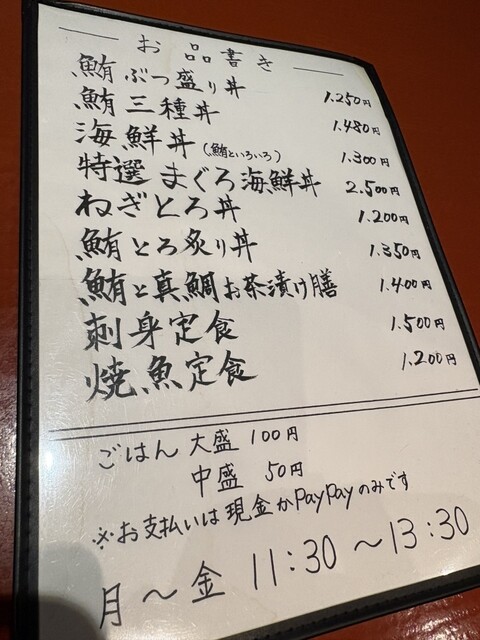 お品書き
鮪ぶつ盛り丼 1.250円
鮪三種丼 1.480円
海鮮丼(鮪といろいろ) 1.300円
特選まぐろ海鮮丼 2.500円
ねぎとろ丼 1.200円
鮪とろ炙り丼 1.350円
鮪と真鯛お茶漬け膳 1.400円
刺身定食 1.500円
焼魚定食 1.200円
ごはん 大盛 100円
中盛 50円
※お支払いは現金かPayPayのみです
月〜金 11:30〜13:30